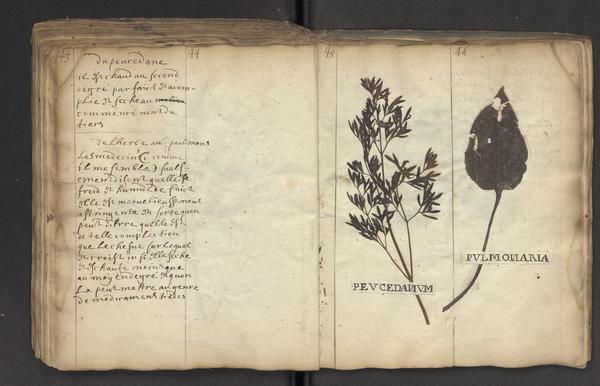 43
44
45
46
du peucedane
il est chaud au second
degre parfaict et acom-
plie et seche au milieu
commencement du
tiers
de Lherbe au poulmons
Les medecins comme
il me semble faulse-
ment disent quelle est
froid et humide faict
elle est marveilleusement
astringente et sorte quon
peut dire quelle est
de telle complection
que le chesne sur lequel
et croist ainsi elle seche
et chaufe moins que
au moyen degre et quon
La peut mettre au genre
de medicamens tiedes
PEUCEDANUM
PULMONARIA